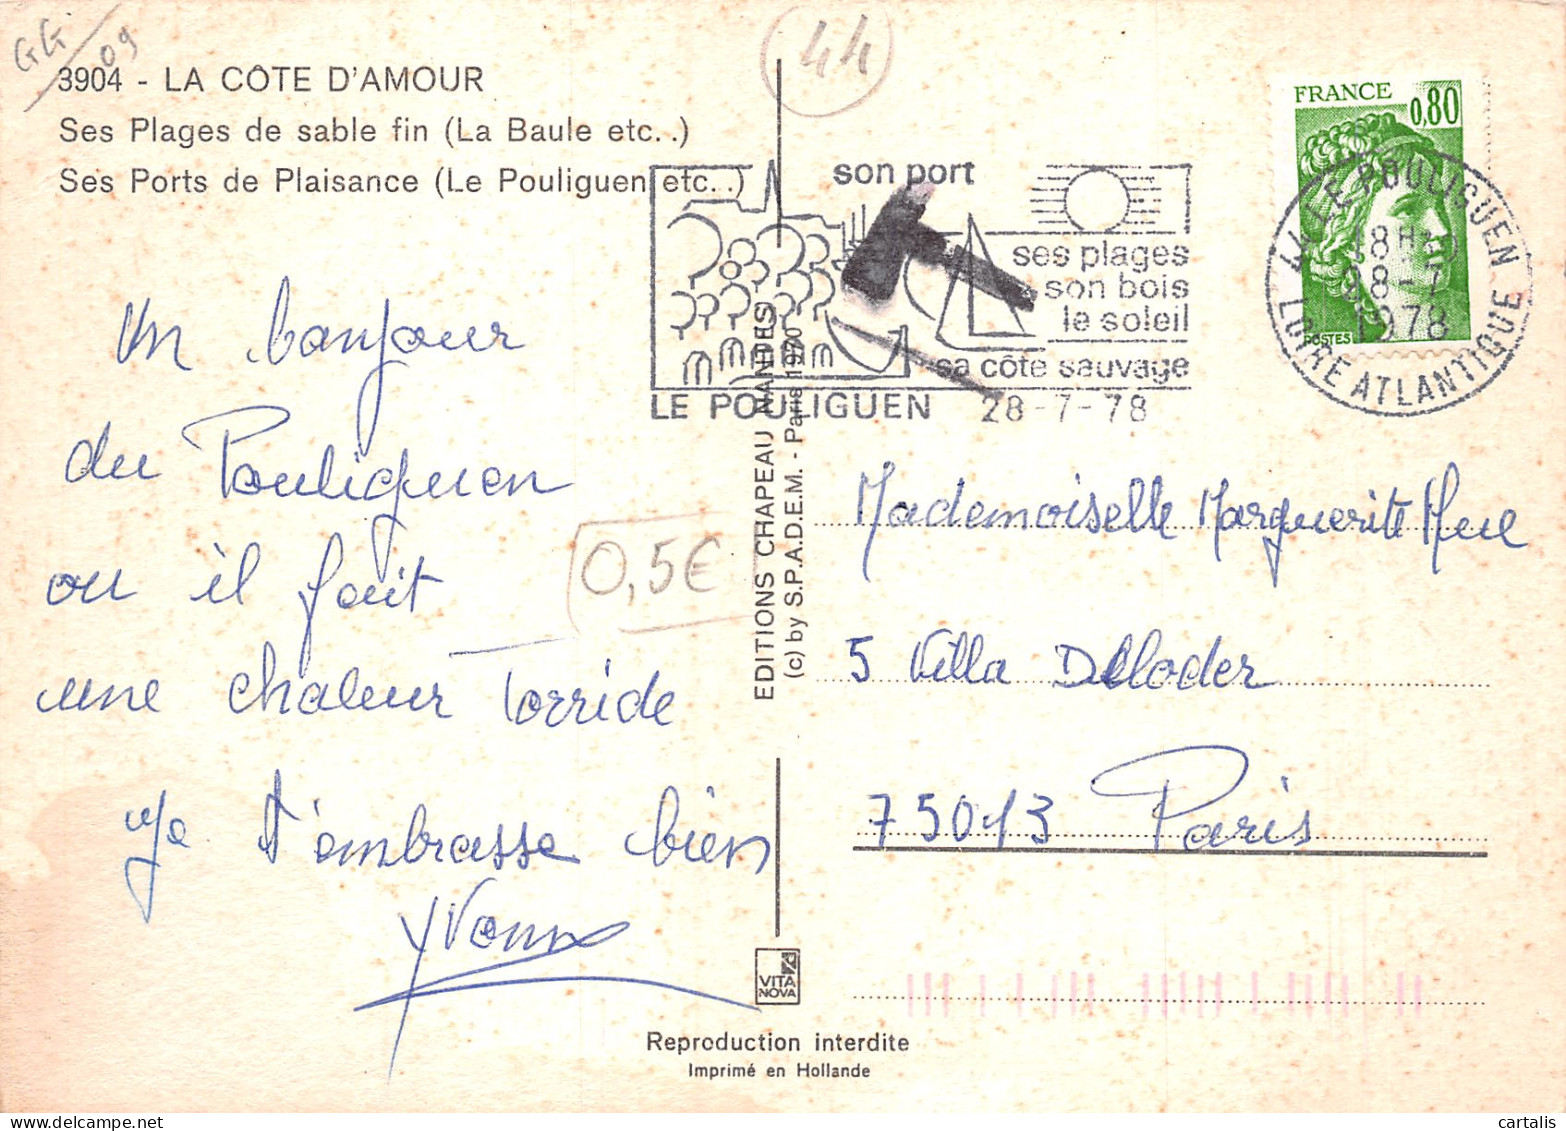 GG 09
44
3904 - LA CÔTE D'AMOUR
Ses Plages de sable fin (La Baule etc. .)
Ses Ports de Plaisance (Le Pouliguen etc. .)
FRANCE
0,80
POSTES
son port
ses plages
son bois
le soleil
sa côte sauvage
LE POULIGUEN 28-7-78
44 LE POULIGUEN
18H
28-7
1978
LOIRE ATLANTIQUE
Un bonjour
du Pouliguen
ou il fait
une chaleur Torride
Je t'embrasse bien
Yvonne
0,5€
EDITIONS CHAPEAU NANTES
(c) by S.P.A.D.E.M. - Paris 1970
Mademoiselle Marguerite
5 Villa Deloder
75013 Paris
VITA
NOVA
Reproduction interdite
Imprimé en Hollande
cartalis
delcampe.net